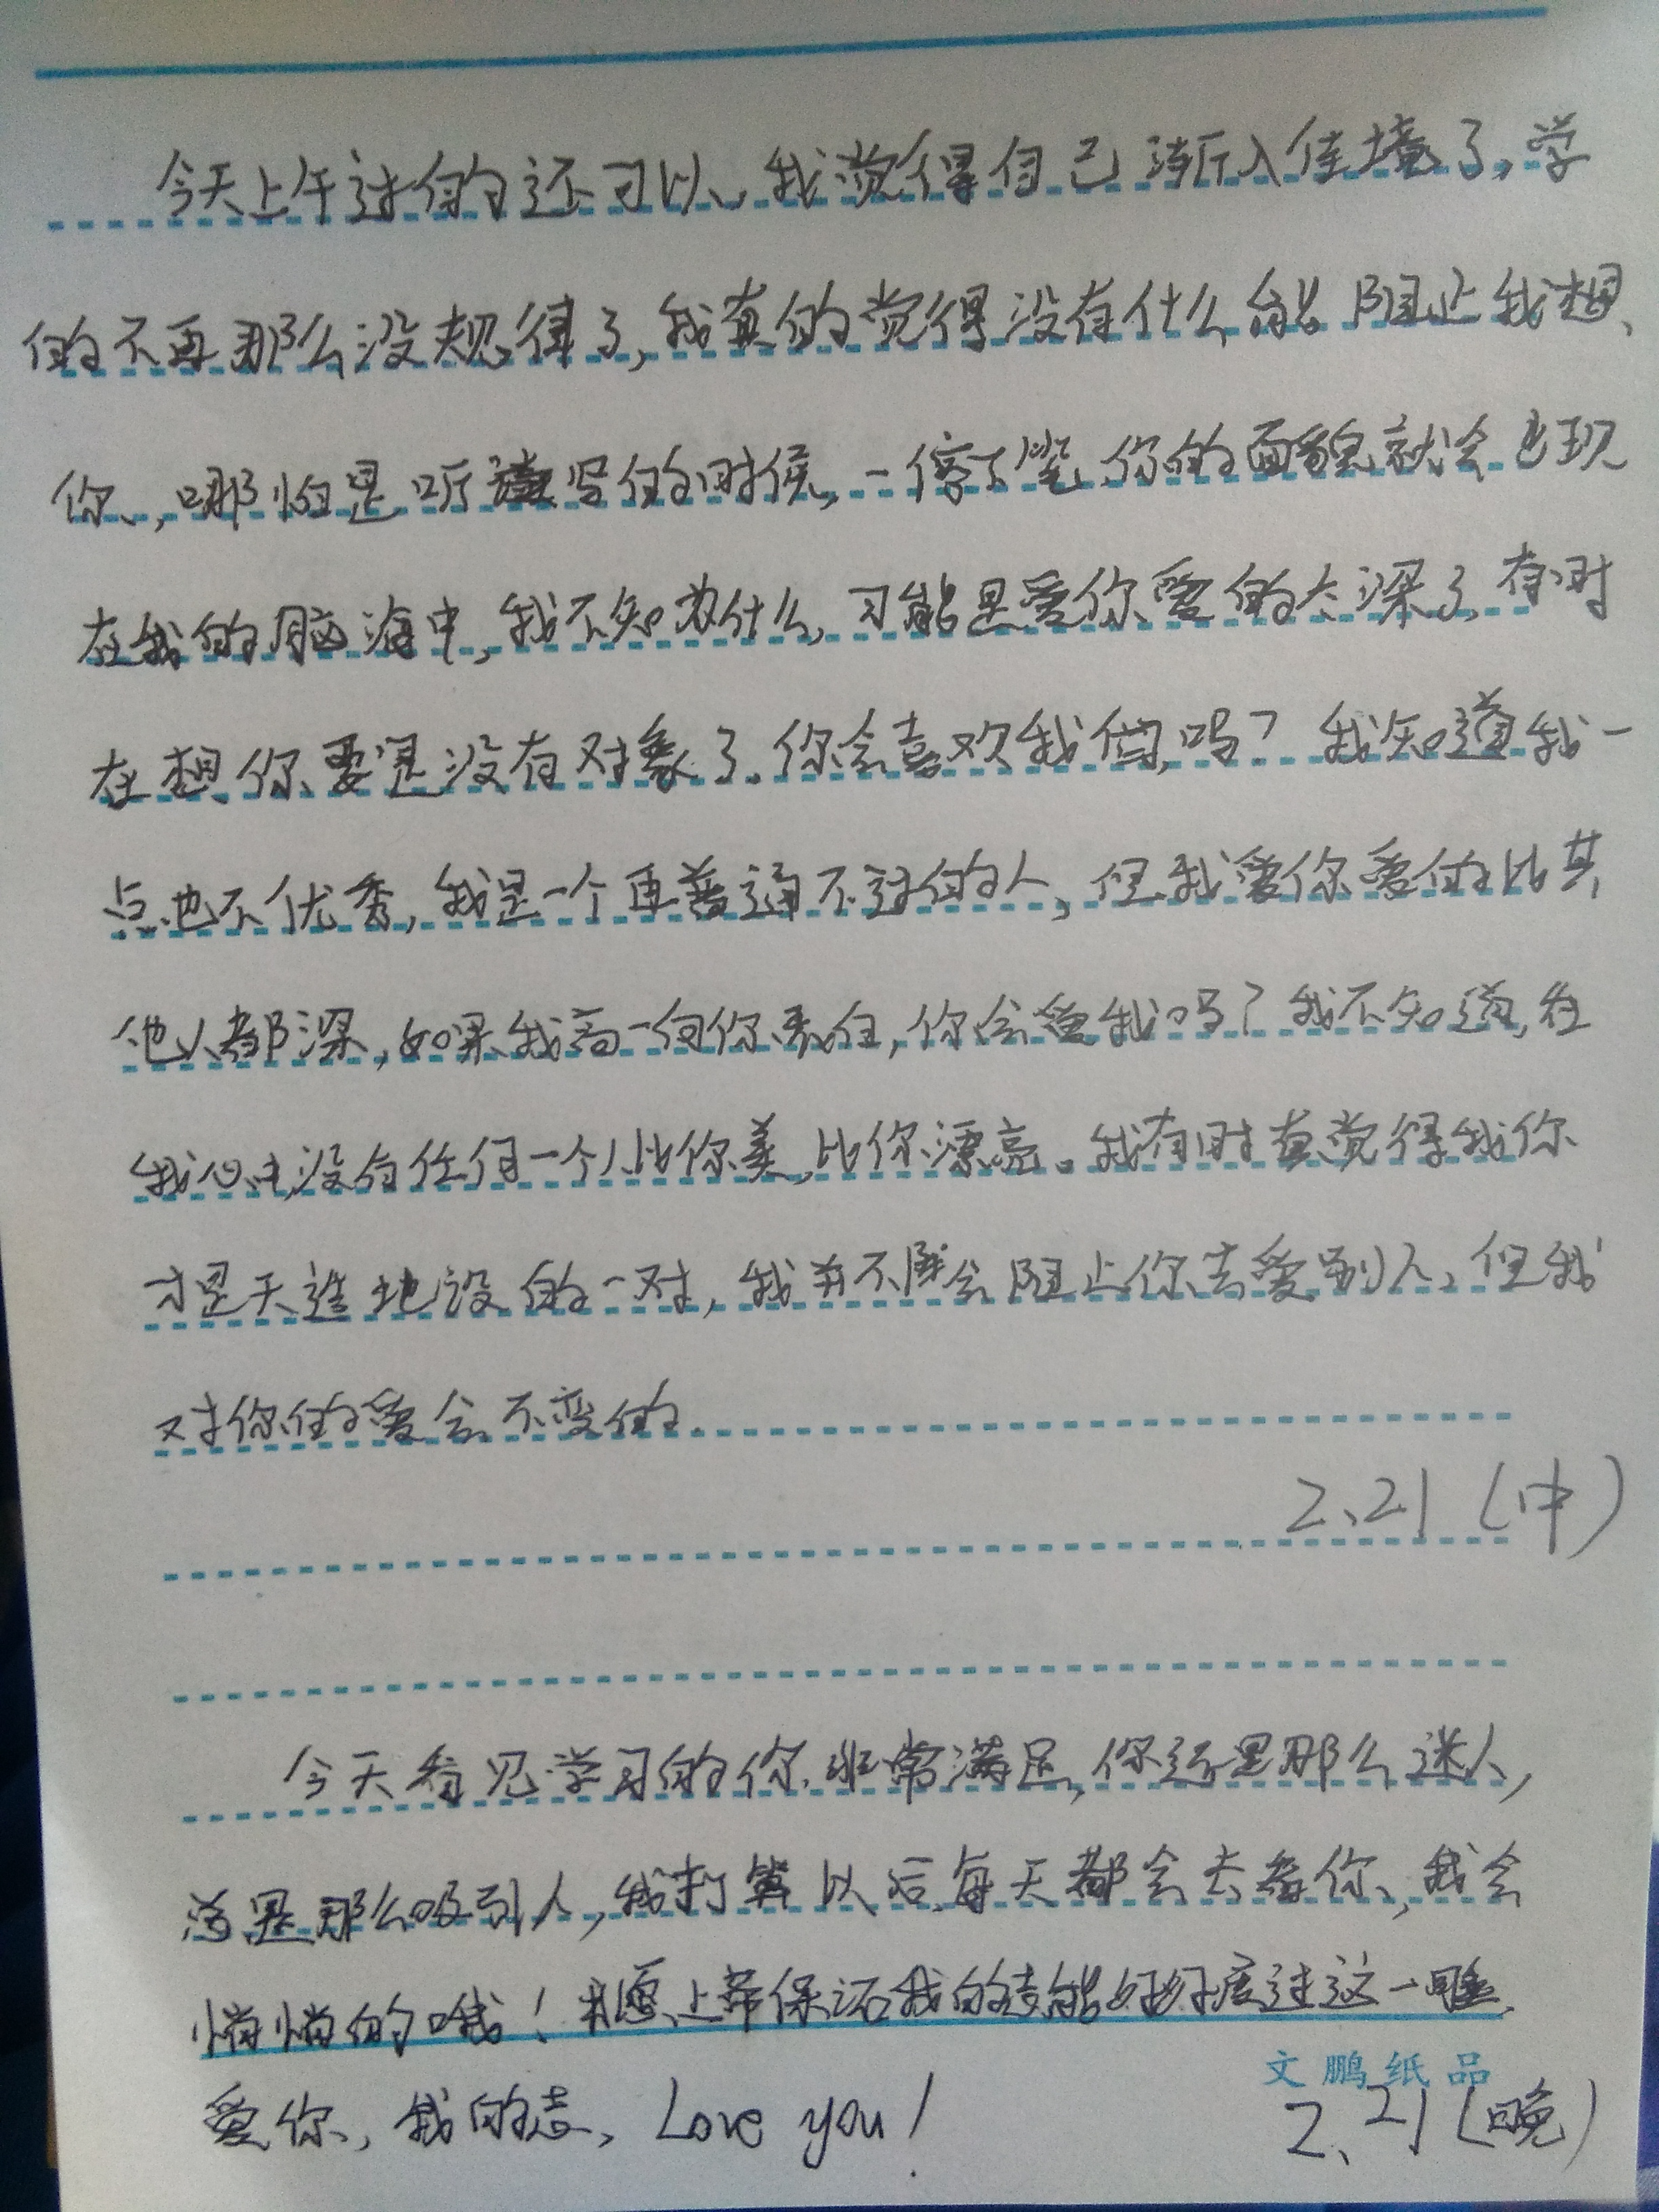 今天上午过的还可以，我觉得自己渐入佳境了，学
的不再那么没规律了，我真的觉得没有什么能阻止我想
你，哪怕是听写的时候，一停下笔，你的面貌就会出现
在我的脑海中，我不知为什么，可能是爱你爱的太深了，有时
在想你要是没有对象了，你会喜欢我吗？我知道我一
点也不优秀，我是一个再普通不过的人，但我爱你爱的比其
他人都深，如果我万一向你表白，你会爱我吗？我不知道，在
我心中没有任何一个人比你美，比你漂亮。我有时真觉得我你
才是天造地设的一对，我并不会阻止你去爱别人，但我
对你的爱会不变的。
2、21（中）
今天看见学习的你，非常满足，你还是那么迷人，
总是那么吸引人，我打算以后每天都会去看你，我会
悄悄的哦！我愿上帝保活我的志能好好度过这一晚，
文鹏纸品
爱你，我的志，Love you！
2、21（晚）